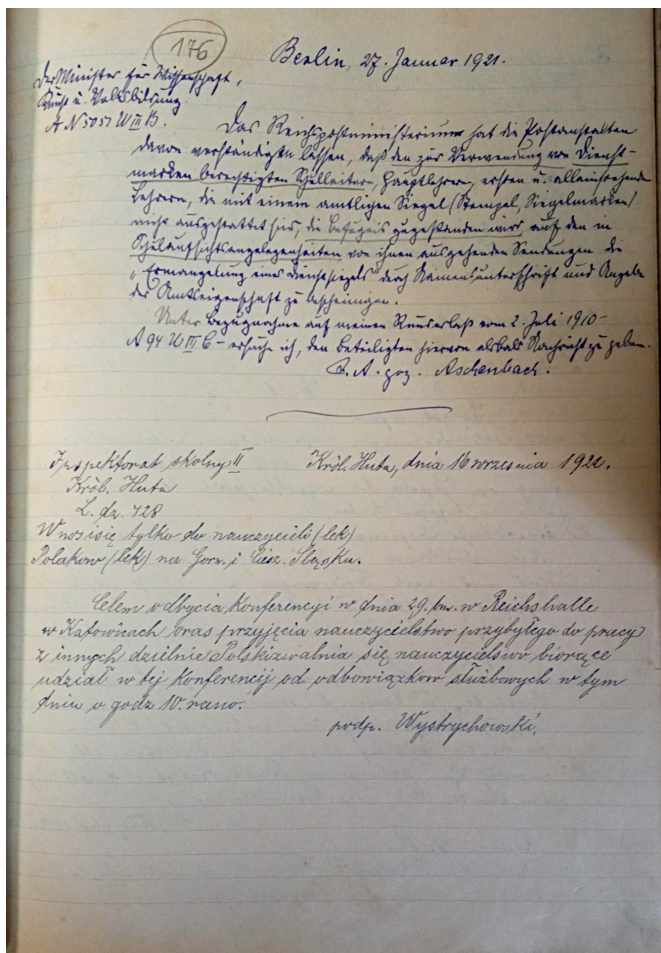 176
Berlin, 27. Januar 1921.
Der Minister für Wissenschaft,
Kunst u. Volksbildung
A N 5051 U III B.
Das Reichspostministerium hat die Postanstalten
davon verständigen lassen, daß den zur Verwendung von Dienst-
marken berechtigten Schulleitern, Hauptlehrern, ersten u. alleinstehenden
Lehrern, die mit einem amtlichen Siegel (Stempel, Siegelmarken)
nicht ausgestattet sind, die Befugnis zugestanden wird, auf den in
Schulaufsichtsangelegenheiten von ihnen ausgehenden Sendungen die
"Ermangelung eines Dienstsiegels" durch Namensunterschrift und Angabe
der Amtseigenschaft zu bescheinigen.
Unter Bezugnahme auf meinen Runderlaß vom 2. Juli 1910 –
A 94 U III C – ersuche ich, den Beteiligten hiervon alsbald Nachricht zu geben.
I. A. gez. Aschenbach.
Inspektorat skolny II
Król. Huta, dnia 16 wrzesnia 1922.
Król. Huta
L. dz. 428
Wnosi się tylko do nauczycieli (lek)
Polakow (lek) na Gorn. i Ciesz. Slązku.
Celem odbycia Konferencyi w dnia 29. bm. w Reichshalle
w Katowicach oras przyjęcia nauczycielstwo przybyłego do pracy
z innych dzielnic Polski zwalnia się nauczycielswo biorące
udział w tej Konferencij od odbowiązkow służbowych w tym
dniu o godz 10. rano.
podp. Wystrychowski.